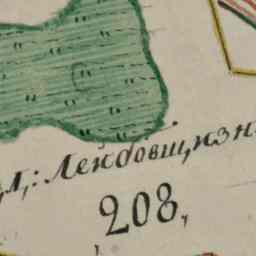 Лендовщизн
208,